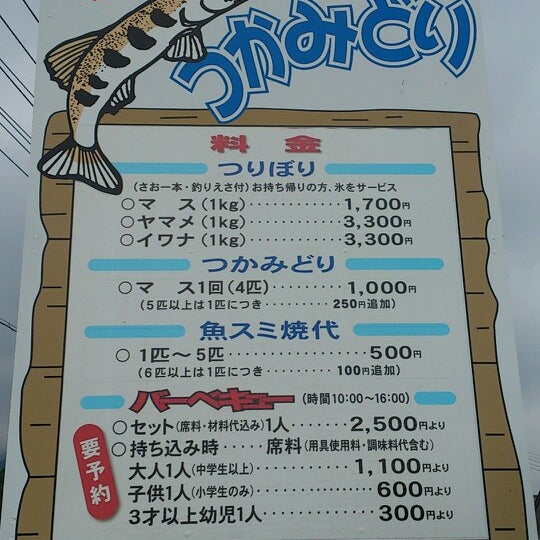 つかみどり
料金
つりぼり
(さお一本・釣りえさ付)お持ち帰りの方、氷をサービス
○マ ス(1kg)‥‥‥‥‥1,700円
○ヤマメ(1kg)‥‥‥‥‥3,300円
○イワナ(1kg)‥‥‥‥‥3,300円
つかみどり
○マ ス1回(4匹)‥‥‥‥1,000円
(5匹以上は1匹につき‥‥‥‥250円追加)
魚スミ焼代
○ 1匹〜5匹‥‥‥‥‥‥500円
(6匹以上は1匹につき‥‥‥‥100円追加)
バーベキュー (時間10:00〜16:00)
要予約
○セット(席料・材料代込み)1人‥‥‥2,500円より
○持ち込み時‥‥‥席料(用具使用料・調味料代含む)
大人1人(中学生以上)‥‥‥‥1,100円より
子供1人(小学生のみ)‥‥‥‥600円より
3才以上幼児1人‥‥‥‥‥300円より